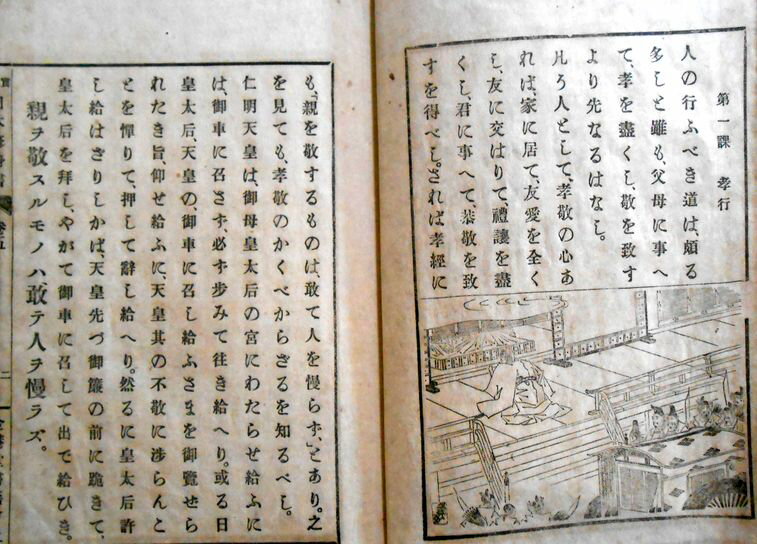 第一課 孝行
人の行ふべき道は、頗る
多しと雖も、父母に事へ
て、孝を盡くし、敬を致す
より先なるはなし。
凡ろ人として、孝敬の心あ
れば、家に居て、友愛を全く
し、友に交はりて、禮讓を盡
くし、君に事へて、恭敬を致
すを得べし。されば孝經に
も、親を敬するものは、敢て人を慢らず、」とあり。之
を見ても、孝敬のかくべからざるを知るべし。
仁明天皇は、御母皇太后の宮にわたらせ給ふに
は、御車に召さず、必ず歩みて往き給へり。或る日
皇太后、天皇の、御車に召し給ふさまを御覽せら
れたき旨、仰せ給ふに、天皇其の不敬に渉らんこ
とを憚りて、押して辭し給へり。然るに皇太后許
し給はざりしかば、天皇先づ御簾の前に跪きて、
皇太后を拜し、やがて御車に召して出で給ひき。
親ヲ敬スルモノハ敢テ人ヲ慢ラズ。
卷五
二